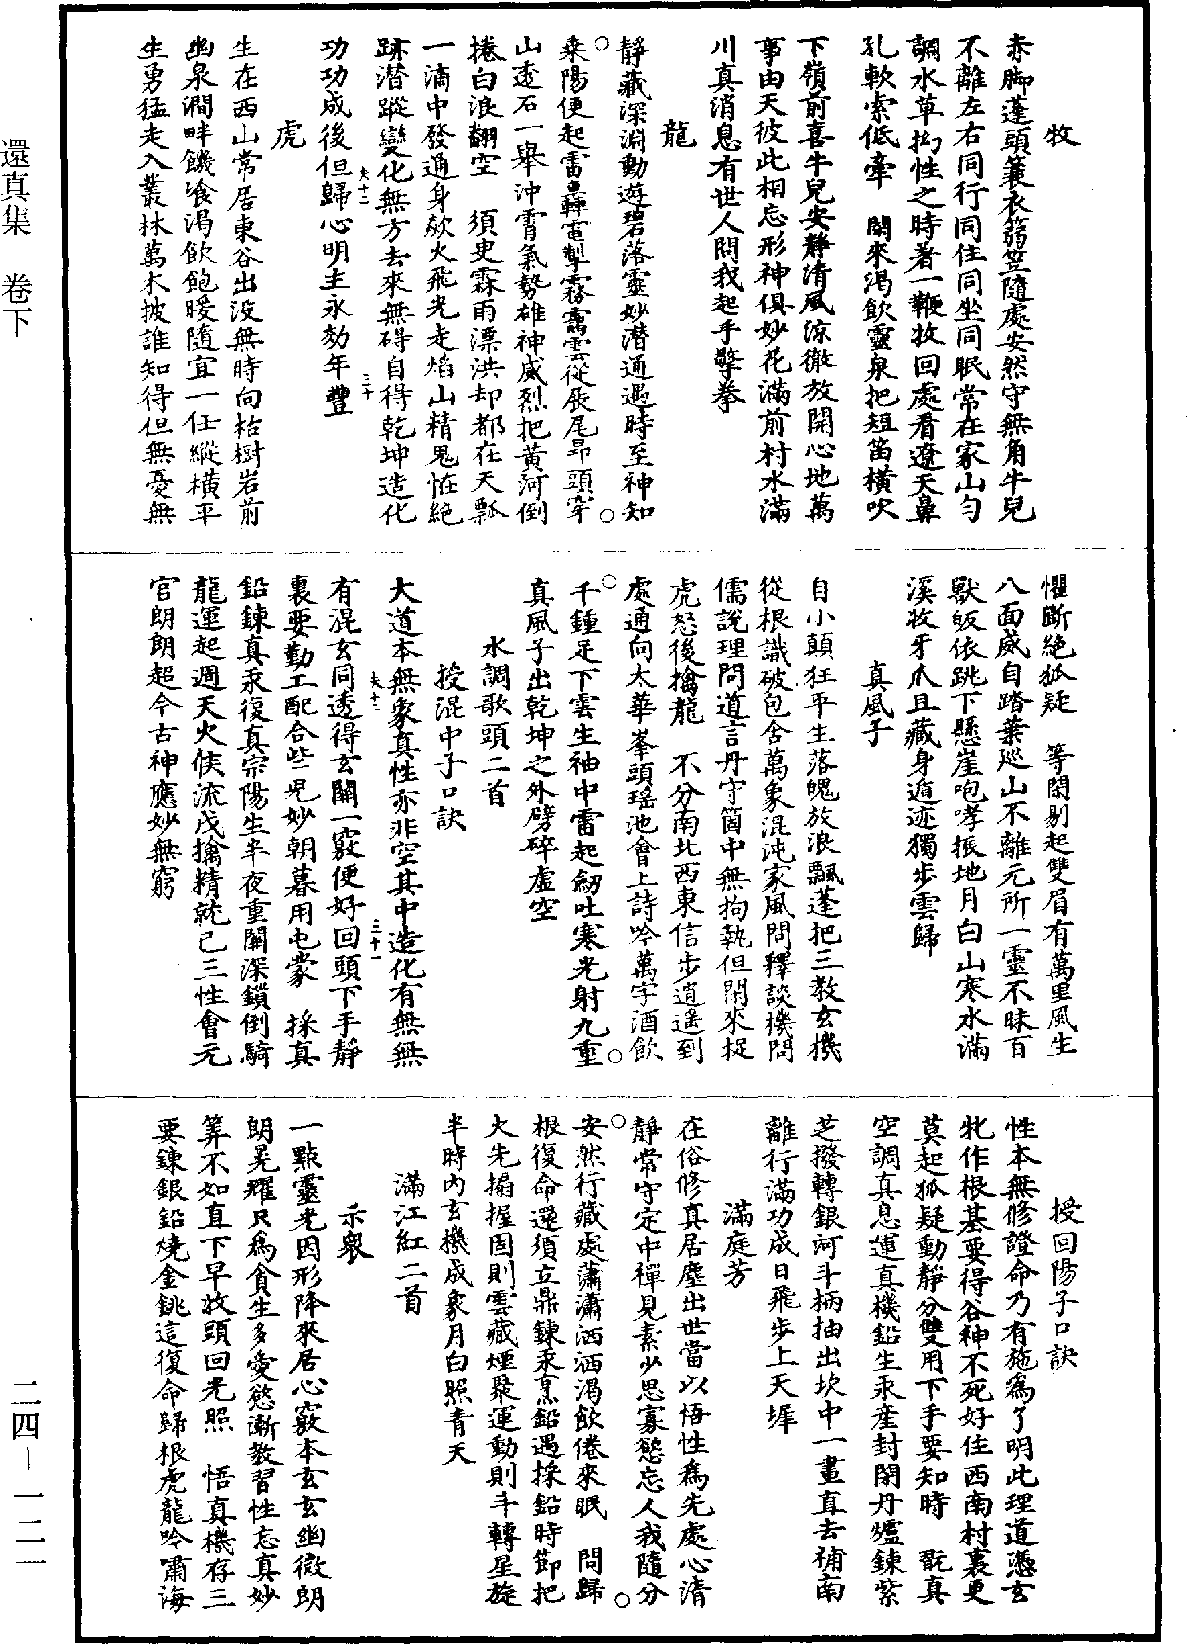 還真集　卷下
二四–一二一
牧
赤脚蓬頭蓑衣篛笠隨處安然守無角牛兒
不離左右同行同住同坐同眠常在家山勻
調水草拘性之時著一鞭牧回處看遼天鼻
孔軟索低牽　閑來渴飲靈泉把短笛橫吹
下嶺前喜牛兒安靜清風涼徹放開心地萬
事由天彼此相忘形神俱妙花滿前村水滿
川真消息有世人問我起手擎拳
龍
靜藏深淵動遊碧落靈妙潜通遇時至神知
乗陽便起雷轟電掣霧靄雲從展尾昂頭穿
山透石一舉沖霄氣勢雄神威烈把黃河倒
捲白浪翻空　須史霖雨漂洪却都在天瓢
一滴中發通身歘火飛光走焰山精鬼恠絕
跡潜蹤變化無方去來無碍自得乾坤造化
夫十二　三十
功功成後但歸心明主永効年豐
虎
生在西山常居東谷出没無時向枯樹岩前
幽泉澗畔饑飡渴飲飽暖隨宜一任縱橫平
生勇猛走入叢林萬木披誰知得但無憂無
懼斷絶狐疑　等閑剔起雙眉有萬里風生
八面威自踏葉廵山不離元所一靈不昧百
獸皈依跳下懸崖咆哮振地月白山寒水滿
溪牧牙爪且藏身遁迹獨步雲歸
真風子
自小顛狂平生落魄放浪飄蓬把三教玄機
從根識破包含萬象混沌家風問釋談機問
儒說理問道言丹守箇中無拘執但閑來捉
虎怒後擒龍　不分南北西東信步逍遥到
處通向太華峯頭瑶池會上詩吟萬字酒飲
千鍾足下雲生袖中雷起劒吐寒光射九重
真風子出乾坤之外劈碎虚空
水調歌頭二首
授混中子口訣
大道本無象真性亦非空其中造化有無無
夫十二　三十一
有混玄同透得玄關一竅便好回頭下手靜
裏要勤工配合些兒妙朝暮用屯蒙　採真
鉛鍊真汞復真宗陽生半夜重關深鎖倒騎
龍運起週天火候流戊擒精就己三性會元
宫朗朗超今古神應妙無窮
授回陽子口訣
性本無修證命乃有施為了明此理道憑玄
牝作根基要得谷神不死好住西南村裏更
莫起狐疑動靜分雙用下手要知時　翫真
空調真息運真機鉛生汞産封閉丹爐鍊紫
芝撥轉銀河斗柄抽出坎中一畫直去補南
離行滿功成日飛步上天墀
滿庭芳
在俗修真居塵出世當以悟性爲先處心清
靜常守定中禪見素少思寡慾忘人我隨分
安然行藏處蕭瀟洒洒渴飲倦來眠　問歸
根復命還須立鼎鍊汞烹鉛遇採鉛時節把
火先搧握固則雲藏煙聚運動則斗轉星旋
半時內玄機成象月白照青天
滿江紅二首
示衆
一點靈光因形降來居心竅本玄玄幽微朗
朗晃耀只爲貪生多愛慾漸教習性忘真妙
筭不如直下早放頭回光照　悟真機存三
要鍊銀鉛燒金銚這復命歸根虎龍吟嘯海